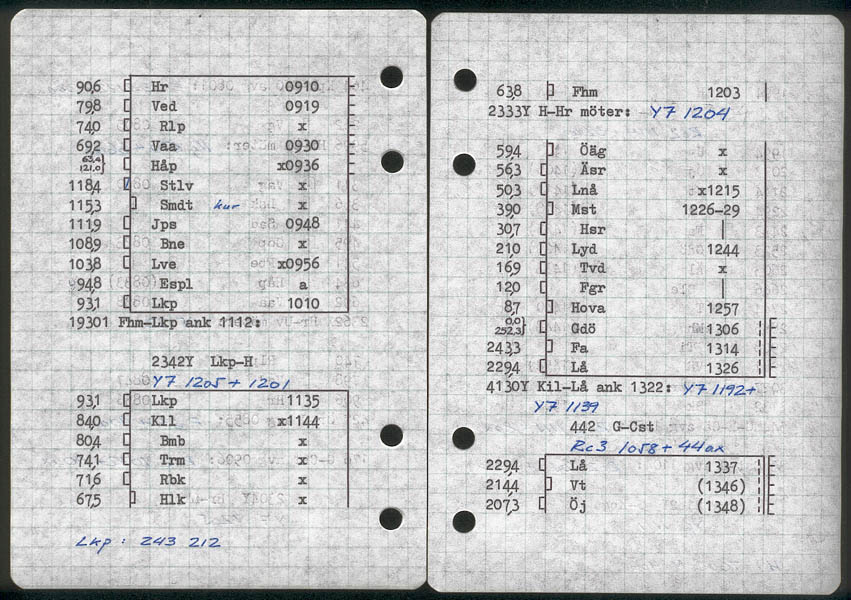 90,6 Hr 0910
79,8 Ved 0919
74,0 Rlp x
69,2 Vaa 0930
63,4
121,0 Håp x0936
118,4 Stlv x
115,3 Smdt kur x
111,9 Jps 0948
108,9 Bne x
103,8 Lve x0956
94,8 Espl a
93,1 Lkp 1010
19301 Fhm-Lkp ank 1112:
2342Y Lkp-H
Y7 1205 + 1201
93,1 Lkp 1135
84,0 Kll x1144
80,4 Bmb x
74,1 Trm x
71,6 Rbk x
67,5 Hlk x
Lkp: 243 212
63,8 Fhm 1203
2333Y H-Hr möter: Y7 1204
59,4 Öäg x
56,3 Äsr x
50,3 Lnå x1215
39,0 Mst 1226-29
30,7 Hsr |
21,0 Lyd 1244
16,9 Tvd x
12,0 Fgr |
8,7 Hova 1257
0,0
252,3 Gdö 1306
243,3 Fa 1314
229,4 Lå 1326
4130Y Kil-Lå ank 1322: Y7 1192+
Y7 1139
442 G-Cst
Rc3 1058 + 44ax
229,4 Lå 1337
214,4 Vt (1346)
207,3 Öj (1348)